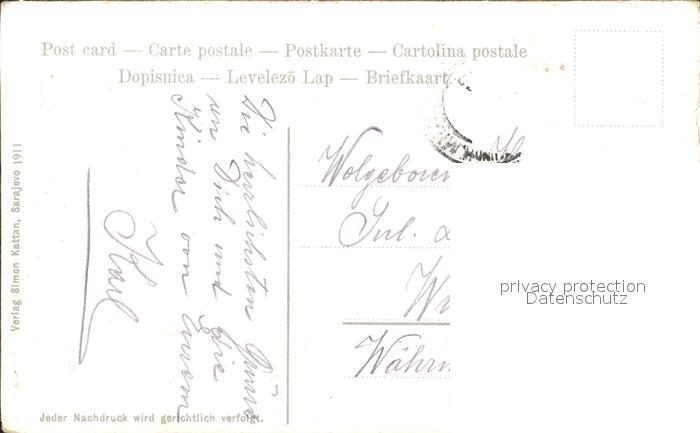 Post card — Carte postale — Postkarte — Cartolina postale
Dopisnica — Levelező Lap — Briefkaart
Verlag Simon Kattan, Sarajevo 1911
Die herzlichsten Grüsse
an Dich und die
Kinder von Eurem
Karl
Wolgeboren
Wi
Währin
privacy protection
Datenschutz
Jeder Nachdruck wird gerichtlich verfolgt.